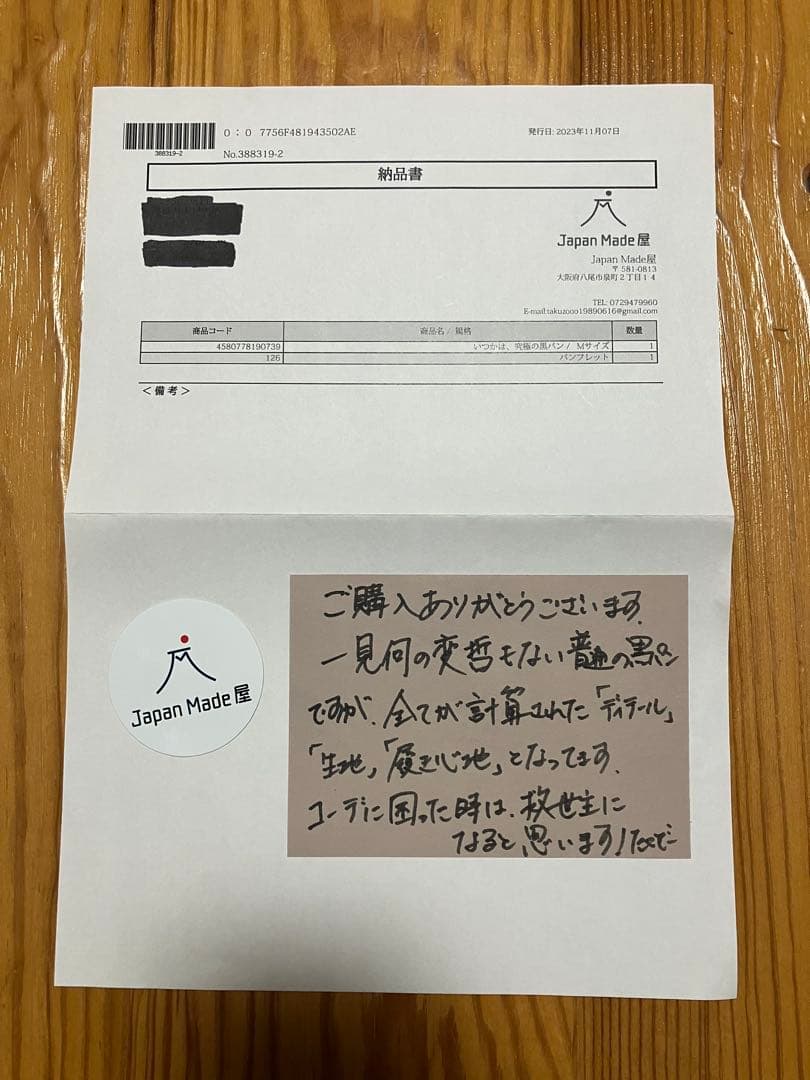 0：0 7756F481943502AE
発行日: 2023年11月07日
388319-2
No.388319-2
納品書
Japan Made屋
Japan Made屋
〒581-0813
大阪府八尾市泉町２丁目１４
TEL: 0729479960
E-mail:takuzooo19890616@gmail.com
商品コード 商品名 / 規格 数量
4580778190739 いつかは、究極の黒パン / Mサイズ 1
126 パンフレット 1
＜備考＞
Japan Made屋
ご購入ありがとうございます.
一見何の変哲もない普通の黒パン
ですが、全てが計算された「ディテール」
「生地」「履き心地」となってます.
コーデに困った時は、救世主に
なると思います!